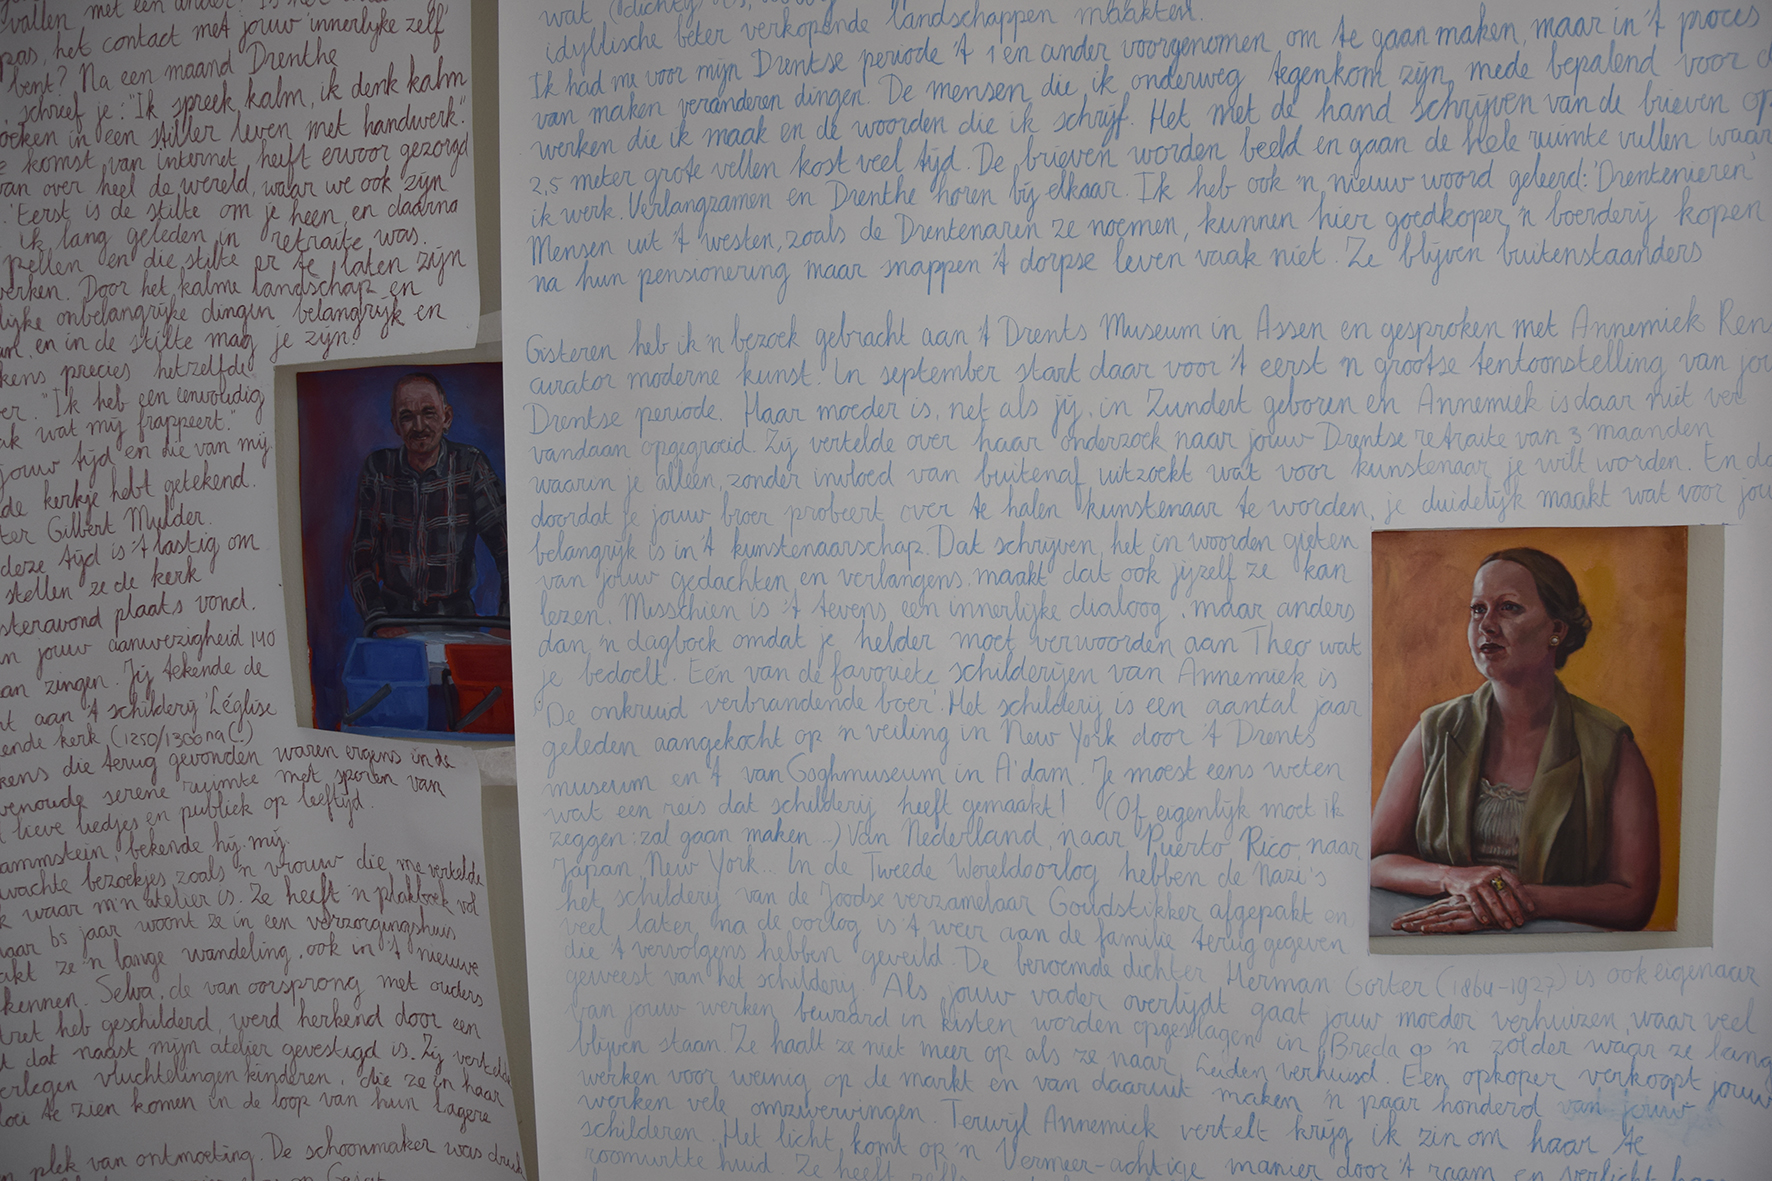 vallen met een ander? Is het
pas, het contact met jouw innerlijke zelf
bent? Na een maand Drenthe
schreef je: "Ik spreek kalm, ik denk kalm
in een stiller leven met handwerk."
komst van internet, heeft ervoor gezorgd
van over heel de wereld, waar we ook zijn
'Eerst is de stilte om je heen, en daarna
ik lang geleden in retraite was.
pellen en die stilte er te laten zijn
werken. Door het kalme landschap en
lijke onbelangrijke dingen belangrijk en
en in de stilte mag je zijn.
kens precies hetzelfde
"Ik heb een eenvoudig
wat mij frappeert."
jouw tijd en die van mij.
de kerkje hebt getekend.
ter Gilbert Mulder.
deze tijd is 't lastig om
stellen ze de kerk
steravond plaats vond.
jouw aanwezigheid 140
an zingen. Jij tekende de
aan 't schilderij 'L'église
ende kerk (1250/1300 na C.)
kens die terug gevonden waren ergens in de
venoude serene ruimte met sporen van
lieve liedjes en publiek op leeftijd.
ammstein, bekende hij mij.
wachte bezoekjes zoals 'n vrouw die me vertelde
waar m'n atelier is. Ze heeft 'n plakboek vol
naar 65 jaar woont ze in een verzorgingshuis
akt ze 'n lange wandeling, ook in 't nieuwe
kennen. Selva, de van oorsprong met ouders
tret heb geschilderd, werd herkend door een
dat naast mijn atelier gevestigd is. Zij vertelde
erlegen vluchtelingen kinderen, die ze in haar
loei te zien komen in de loop van hun lagere
plek van ontmoeting. De schoonmaker was druk
wat (dichty
idyllische beter verkopende landschappen maakten.
Ik had me voor mijn Drentse periode 't 1 en ander voorgenomen om te gaan maken, maar in 't proces
van maken veranderen dingen. De mensen die ik onderweg tegenkom zijn mede bepalend voor d
werken die ik maak en de woorden die ik schrijf. Het met de hand schrijven van de brieven op
2,5 meter grote vellen kost veel tijd. De brieven worden beeld en gaan de hele ruimte vullen waar
ik werk. Verlangzamen en Drenthe horen bij elkaar. Ik heb ook 'n nieuw woord geleerd: 'Drentenieren'
Mensen uit 't westen, zoals de Drentenaren ze noemen, kunnen hier goedkoper 'n boerderij kopen
na hun pensionering maar snappen 't dorpse leven vaak niet. Ze blijven buitenstaanders
Gisteren heb ik 'n bezoek gebracht aan 't Drents Museum in Assen en gesproken met Annemiek Rens
curator moderne kunst. In september start daar voor 't eerst 'n grootse tentoonstelling van jou
Drentse periode. Haar moeder is, net als jij, in Zundert geboren en Annemiek is daar niet ver
vandaan opgegroeid. Zij vertelde over haar onderzoek naar jouw Drentse retraite van 3 maanden
waarin je alleen, zonder invloed van buitenaf uitzoekt wat voor kunstenaar je wilt worden. En da
doordat je jouw broer probeert over te halen kunstenaar te worden, je duidelijk maakt wat voor jou
belangrijk is in 't kunstenaarschap. Dat schrijven, het in woorden gieten
van jouw gedachten en verlangens, maakt dat ook jijzelf ze kan
lezen. Misschien is 't tevens een innerlijke dialoog, maar anders
dan 'n dagboek omdat je helder moet verwoorden aan Theo wat
je bedoelt. Eén van de favoriete schilderijen van Annemiek is
'De onkruid verbrandende boer'. Het schilderij is een aantal jaar
geleden aangekocht op 'n veiling in New York door 't Drents
museum en 't van Goghmuseum in A'dam. Je moest eens weten
wat een reis dat schilderij heeft gemaakt! (Of eigenlijk moet ik
zeggen: zal gaan maken..) Van Nederland, naar Puerto Rico, naar
Japan, New York.. In de Tweede Wereldoorlog hebben de Nazi's
het schilderij van de Joodse verzamelaar Goudstikker afgepakt en
veel later, na de oorlog is 't weer aan de familie terug gegeven
die 't vervolgens hebben geveild. De beroemde dichter Herman Gorter (1864-1927) is ook eigenaar
geweest van het schilderij. Als jouw vader overlijdt gaat jouw moeder verhuizen, waar veel
van jouw werken bewaard in kisten worden opgeslagen in Breda op 'n zolder waar ze lang
blijven staan. Ze haalt ze niet meer op als ze naar Leiden verhuisd. Een opkoper verkoopt jouw
werken voor weinig op de markt en van daaruit maken 'n paar honderd van jouw
werken vele omzwervingen. Terwijl Annemiek vertelt krijg ik zin om haar te
schilderen. Het licht komt op 'n Vermeer-achtige manier door 't raam en verlicht haar
roomwitte huid. Ze heeft